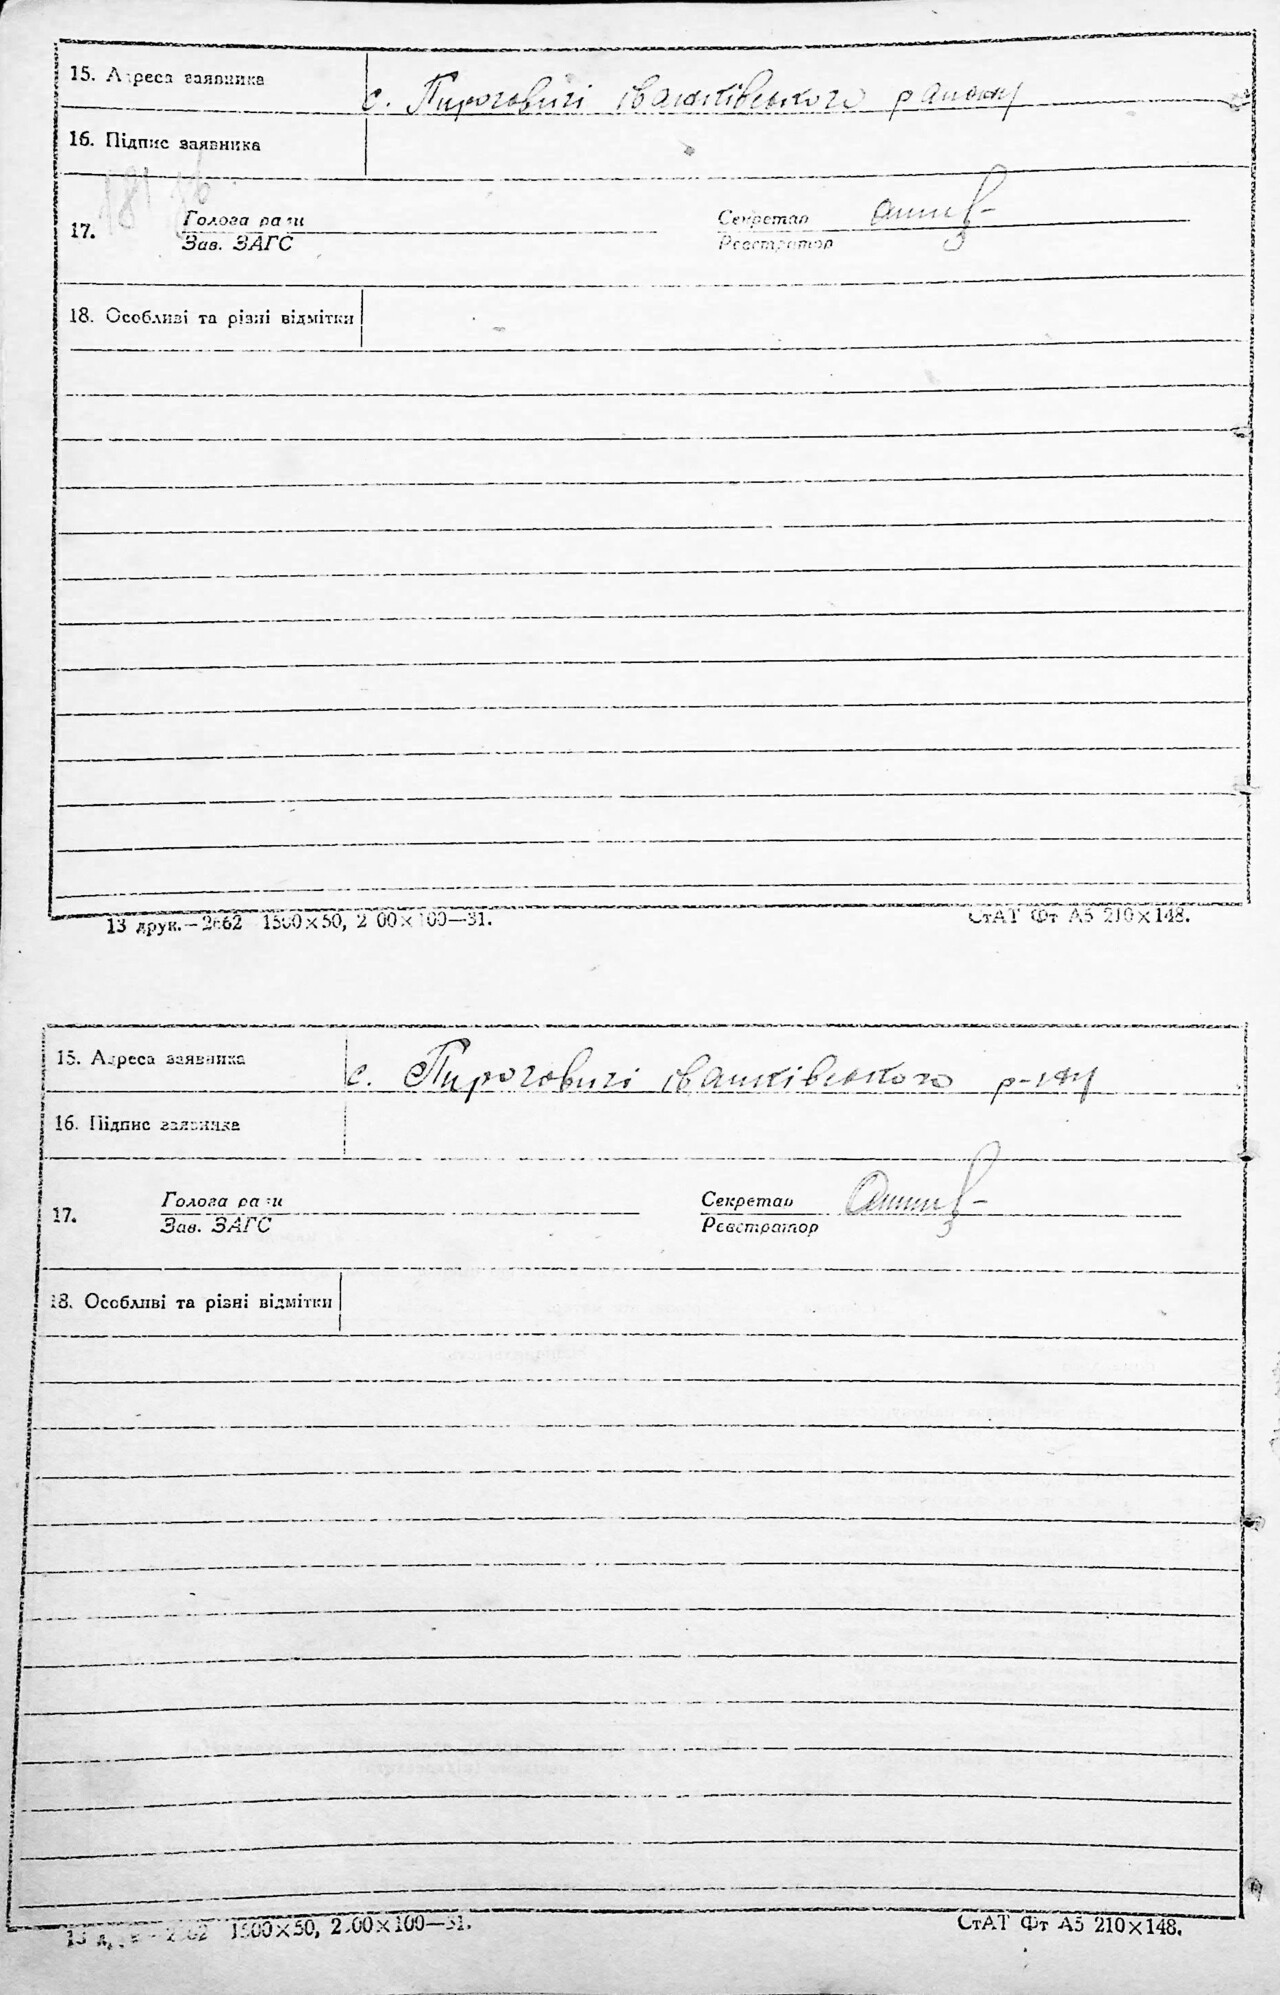 15. Адреса заявника с. Пироговичі іванківського району
16. Підпис заявника
17. Голова ради Секретар
Зав. ЗАГС Реєстратор
18. Особливі та різні відмітки
13 друк.—2662 1500×50, 2 00×100—31. СтАТ Фт А5 210×148.
15. Адреса заявника с. Пироговичі іванківського р-ну
16. Підпис заявника
17. Голова ради Секретар
Зав. ЗАГС Реєстратор
18. Особливі та різні відмітки
1500×50, 2.00×100—31. СтАТ Фт А5 210×148.